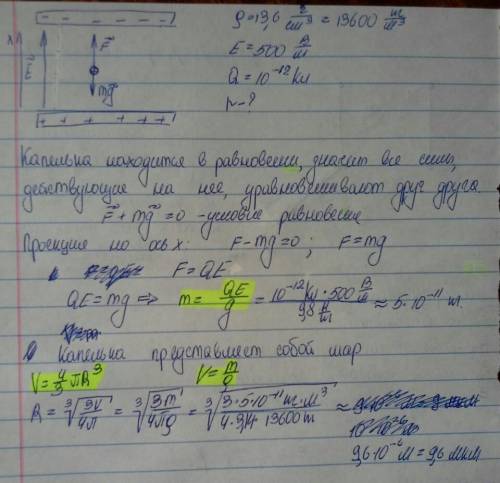 - - - - - -
ρ = 13,6 г/см³ = 13600 кг/м³
x E⃗ F⃗
E = 500 В/м
mg⃗
Q = 10⁻¹² Кл
+ + + + + +
r - ?
Капелька находится в равновесии, значит все силы,
действующие на нее, уравновешивают друг друга
F⃗ + mg⃗ = 0 - условие равновесия
Проекция на ось x: F - mg = 0 ; F = mg
F = QE
QE = mg => m = QE/g = 10⁻¹² Кл · 500 В/м / 9,8 Н/кг ≈ 5·10⁻¹¹ кг.
Капелька представляет собой шар
V = 4/3 πR³ V = m/ρ
R = ∛(3V/4π) = ∛(3m/4πρ) = ∛(3·5·10⁻¹¹ кг·м³/4·3,14·13600 кг) ≈
9,6·10⁻⁶ м = 9,6 мкм